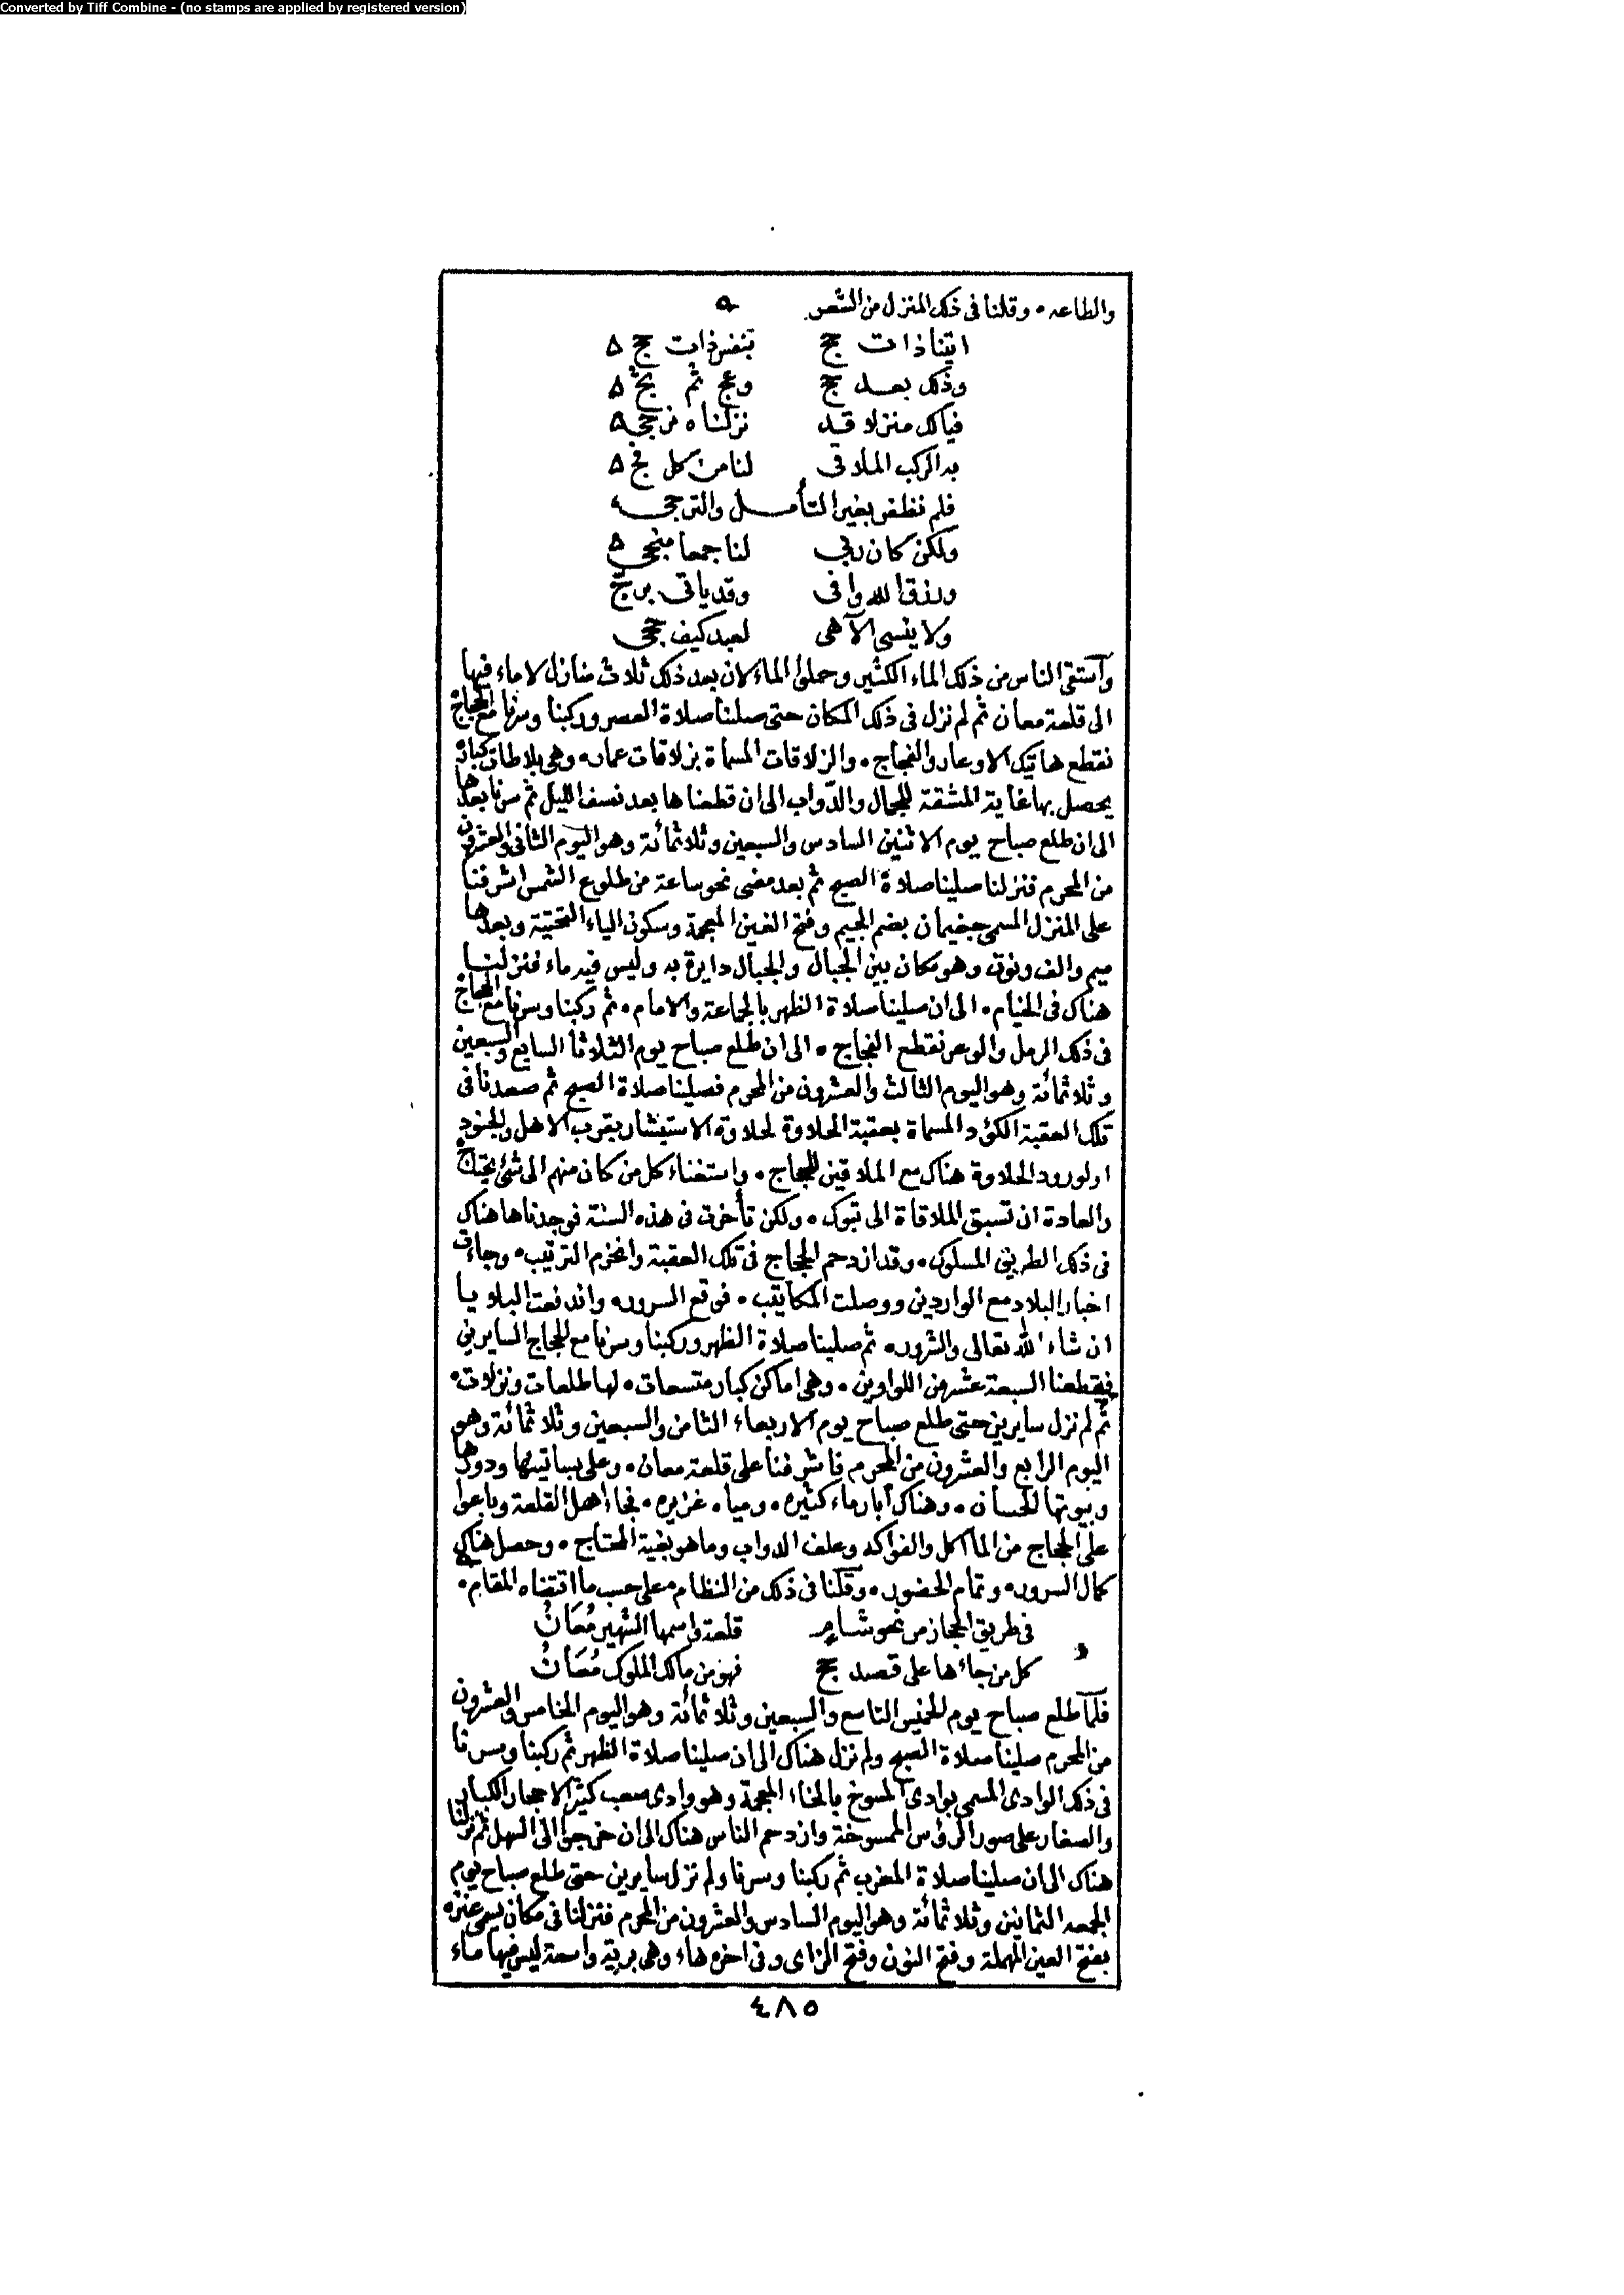 Converted by Tiff Combine - (no stamps are applied by registered version)
والطاعه • وقلنا فى ذلك المنزل من الشعر
اتينا ذات حج بنفس ذات حج
وذلك بعد حج وعج ثم بج
فيالك منزلا قد نزلناه
به الركب الملاقى لنا من كل فج
فلم نظفر بغير التأمل والترجى
ولكن كان ربى لنا جمعا منجى
ورزق الله وافى وقد ياتى
ولا ينسى الآهى لعبد كيف حجى
وآستقى الناس من ذلك الماء الكثير وحملوا الماء لان بعد ذلك ثلاث منازل لا ماء فيها
الى قلعة معان ثم لم نزل فى ذلك المكان حتى صلينا صلاة العصر وركبنا وسرنا مع الحجاج
نقطع هاتيك الاوعار والفجاج • والزلاقات المسماة بزلاقات عمار • وهى بلاطات كبار
يحصل بها غاية المشقة للجمال والدّواب الى ان قطعناها بعد نصف الليل ثم سرنا بعدها
الى ان طلع صباح يوم الاثنين السادس والسبعين وثلاثمائة وهو اليوم الثانى والعشرون
من المحرم فنزلنا صلينا صلاة الصبح ثم بعد مضى نحو ساعة من طلوع الشمس اشرفنا
على المنزل المسمى جغيمان بضم الجيم وفتح الغين المعجمة وسكون الياء التحتية وبعدها
ميم والف ونون وهو مكان بين الجبال والجبال دايرة به وليس فيه ماء فنزلنا
هناك فى الخيام • الى ان صلينا صلاة الظهر بالجماعة والامام • ثم ركبنا وسرنا مع الحجاج
فى ذلك الرمل والوعر نقطع الفجاج • الى ان طلع صباح يوم الثلاثا السابع والسبعين
وثلاثمائة وهو اليوم الثالث والعشرون من المحرم فصلينا صلاة الصبح ثم صعدنا فى
تلك العقبة الكؤد المسماة بعقبة الحلاوة لحلاوة الاستبشار بقرب الاهل والجنود
او لورود الحلاوة هناك مع الملاقين للحجاج • واستغناء كل من كان منهم الى شئ يحتاج
والعادة ان تسبق الملاقاة الى تبوك • ولكن تأخرت فى هذه السنة فوجدناها هناك
فى ذلك الطريق المسلوك • وقد ازدحم الحجاج فى تلك العقبة وانخرم الترتيب • وجاءت
اخبار البلاد مع الواردين ووصلت المكاتيب • فوقع السرور • واندفعت البلايا
ان شاء الله تعالى والشرور • ثم صلينا صلاة الظهر وركبنا وسرنا مع الحجاج السايرين
فقطعنا السبعة عشر من اللواوين • وهى اماكن كبار متسعات • لها طلعات ونزلات •
ثم لم نزل سايرين حتى طلع صباح يوم الاربعاء الثامن والسبعين وثلاثمائة وهو
اليوم الرابع والعشرون من المحرم فاشرفنا على قلعة معان • وعلى بساتينها ودورها
وبيوتها الحسان • وهناك آبار ماء كثيره • ومياه غزيره • فجاء اهل القلعة وباعوا
على الحجاج من المآكل والفواكه وعلف الدواب وما هو بغية المحتاج • وحصل هناك
كمال السرور • وتمام الحضور • وقلنا فى ذلك من النظام • على حسب ما اقتضاه المقام •
فى طريق الحجاز من نحو شام قلعة واسمها الشهير مُعَانُ
كل من جاءها على قصد حج فهو من مالك الملوك مُعَانُ
فلمّا طلع صباح يوم الخميس التاسع والسبعين وثلاثمائة وهو اليوم الخامس والعشرون
من المحرم صلينا صلاة الصبح ولم نزل هناك الى ان صلينا صلاة الظهر ثم ركبنا وسرنا
فى ذلك الوادى المسمى بوادى المسوخ بالخاء المعجمة وهو وادى صعب كثير الاحجار الكبار
والصغار على صور الرؤس الممسوخة وازدحم الناس هناك الى ان خرجوا الى السهل ثم نزلنا
هناك الى ان صلينا صلاة المغرب ثم ركبنا وسرنا ولم نزل سايرين حتى طلع صباح يوم
الجمعه الثمانين وثلاثمائة وهو اليوم السادس والعشرون من المحرم فنزلنا فى مكان يسمى عنزه
بفتح العين المهملة وفتح النون وفتح الزاى وفى اخره هاء وهى برية واسعة ليس فيها ماء
٤٨٥